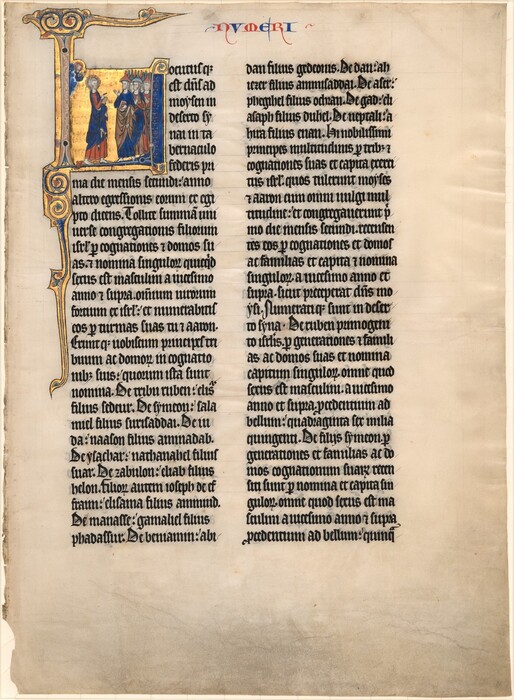 NVMERI
Locutusq;
est dn̄s ad
moysen in
deserto sy
nai in ta
bernaculo
federis pri
ma die mensis secundi: anno
altero egressionis eorum ex egi
pto dicens. Tollite summā uni
uerse congregationis filiorum
isrl̄ p cognationes ⁊ domos su
as. ⁊ nomina singulor
sexus est masculini a uicesimo
anno ⁊ supra. omnium uirorum
fortium ex isrl̄: et numerabitis
eos p turmas suas tu ⁊ aaron.
Eruntq; uobiscum principes tri
buum ac domor in cognatio
nib; suis: quorum ista sunt
nomina. De tribu ruben: elis
filius sedeur. De symeon: sala
miel filius surisaddai. De iu
da: naason filius aminadab.
De ysachar: nathanahel filius
suar. De zabulon: eliab filius
helon. Filior autem ioseph de ef
fraim: elisama filius ammiud.
De manasse: gamaliel filius
phadassur. De beniamin: abi
dan filius gedeonis. De dan: ah
iezer filius amisaddai. De aser:
phegihel filius ochran. De gad: eli
asaph filius duhel. De neptali: a
hira filius enan. Hi nobilissimi
principes multitudinis p trib; ⁊
cognationes suas et capita exerci
tus isrl̄. quos tulerunt moyses
⁊ aaron cum omni uulgi mul
titudine: et congregauerunt p
mo die mensis secundi. recensen
tes eos p cognationes et domos
ac familias et capita ⁊ nomina
singulor. a uicesimo anno et
supra. sicut preceperat dn̄s mo
ysi. Numeratiq; sunt in deser
to syna. De ruben primogeni
to isrl̄is. p generationes ⁊ famili
as ac domos suas et nomina
capitum singulor. omne quod
sexus est masculini. a uicesimo
anno et supra. pcedentium ad
bellum: quadraginta sex milia
quingenti. De filiis symeon. p
generationes et familias ac do
mos cognationum suarum recen
siti sunt p nomina et capita sin
gulor. omne quod sexus est ma
sculini a uicesimo anno ⁊ supra
pcedentium ad bellum: quinq